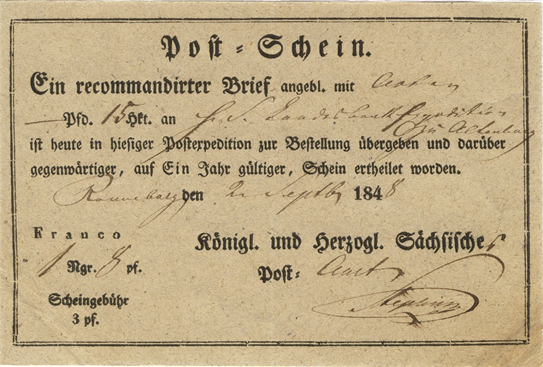 Post-Schein.
Ein recommandirter Brief angebl. mit Acten
— Pfd. 15 Hkt. an H. S. Landesbank Expedition
zu Altenburg
ist heute in hiesiger Postexpedition zur Bestellung übergeben und darüber
gegenwärtiger, auf Ein Jahr gültiger, Schein ertheilet worden.
Ronneburg den 2. Septbr 1848
Franco
1 Ngr. 8 pf.
Königl. und Herzogl. Sächsisches
Post-Amt
Scheingebühr
3 pf.